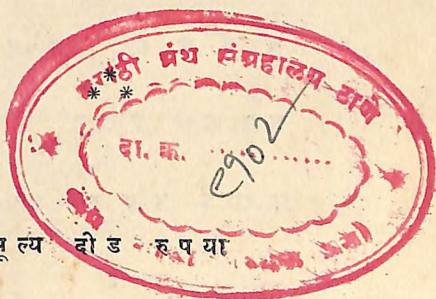 मराठी ग्रंथ संग्रहालय ठाणे
* *
*
दा. क. ............
९१०२
मूल्य दीड रुपया